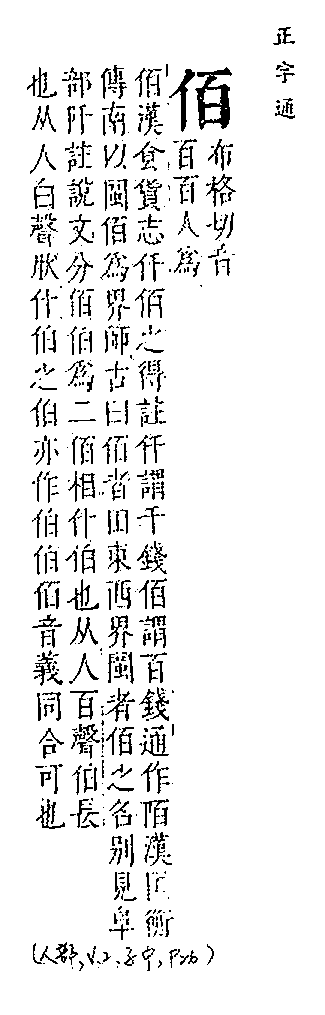 正字通
佰
布格切音
百百人為
佰漢食貨志仟佰之得註仟謂千錢佰謂百錢通作陌漢匡衡
傳南以閩佰為界師古曰佰者田東西界閩者佰之名別見阜
部阡註說文分佰伯為二佰相什伯也从人百聲伯長
也从人白聲狀什伯之伯亦作伯伯佰音義同合可也
(人部, V.2, 子中, P26)